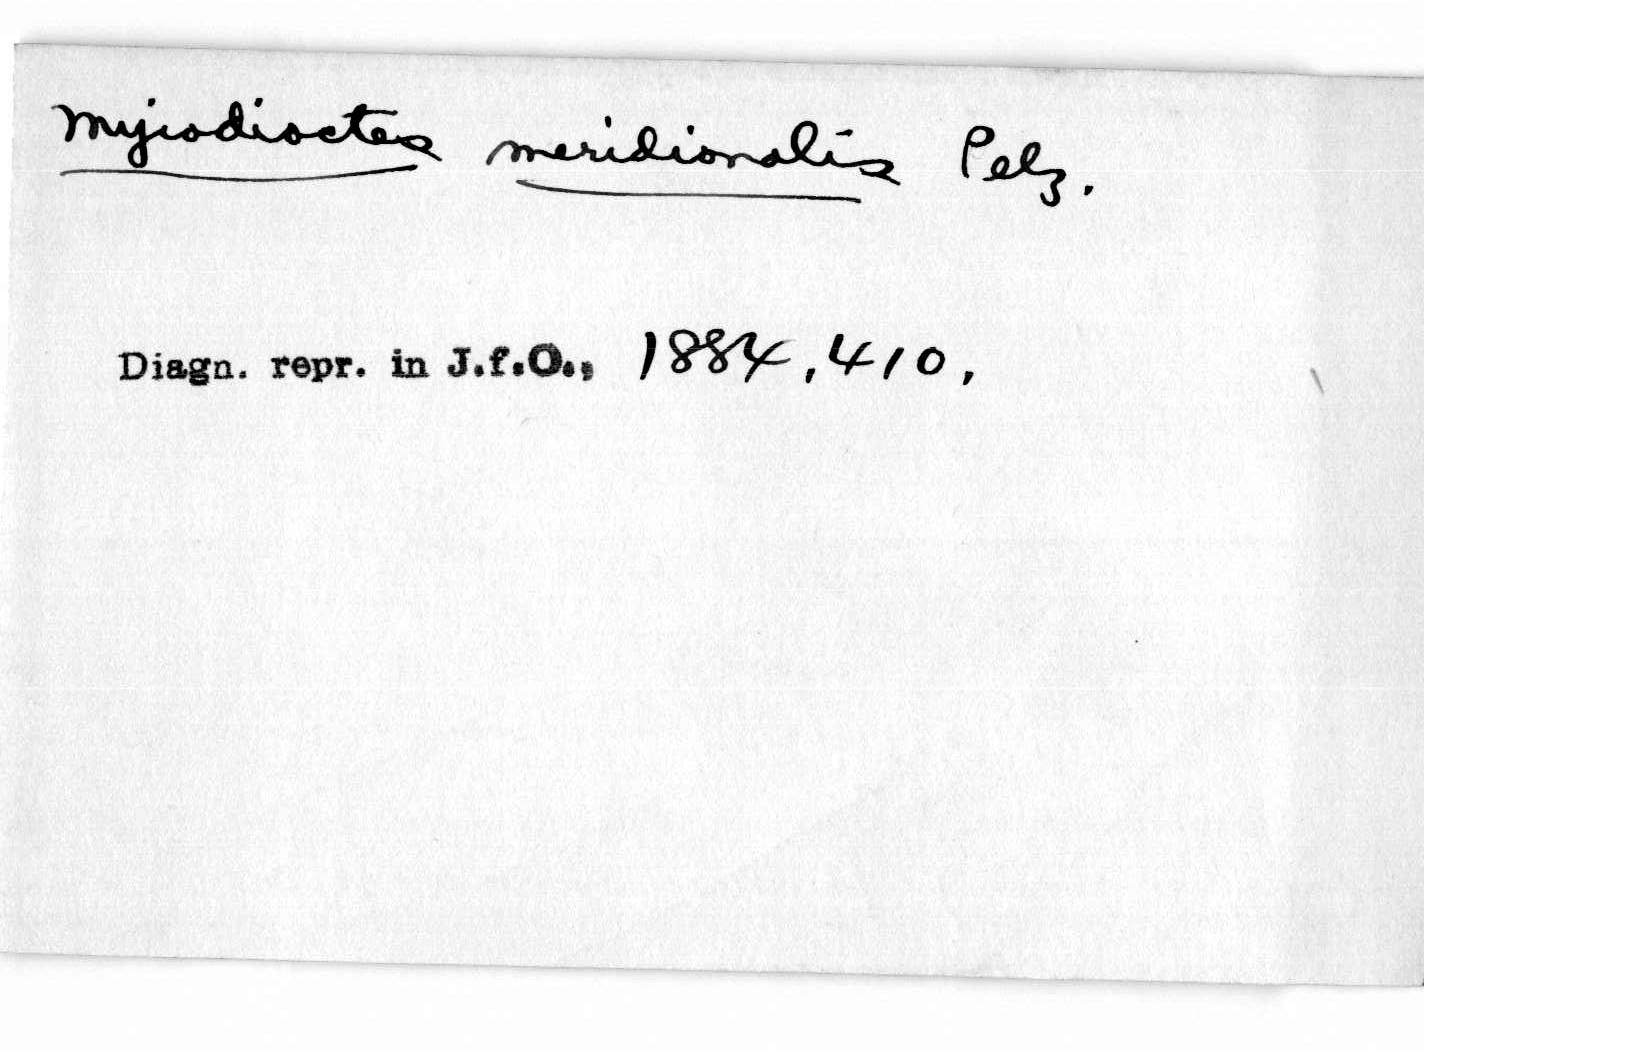 Myiodioctes meridionalis Pelz.
Diagn. repr. in J.f.O., 1884, 410,